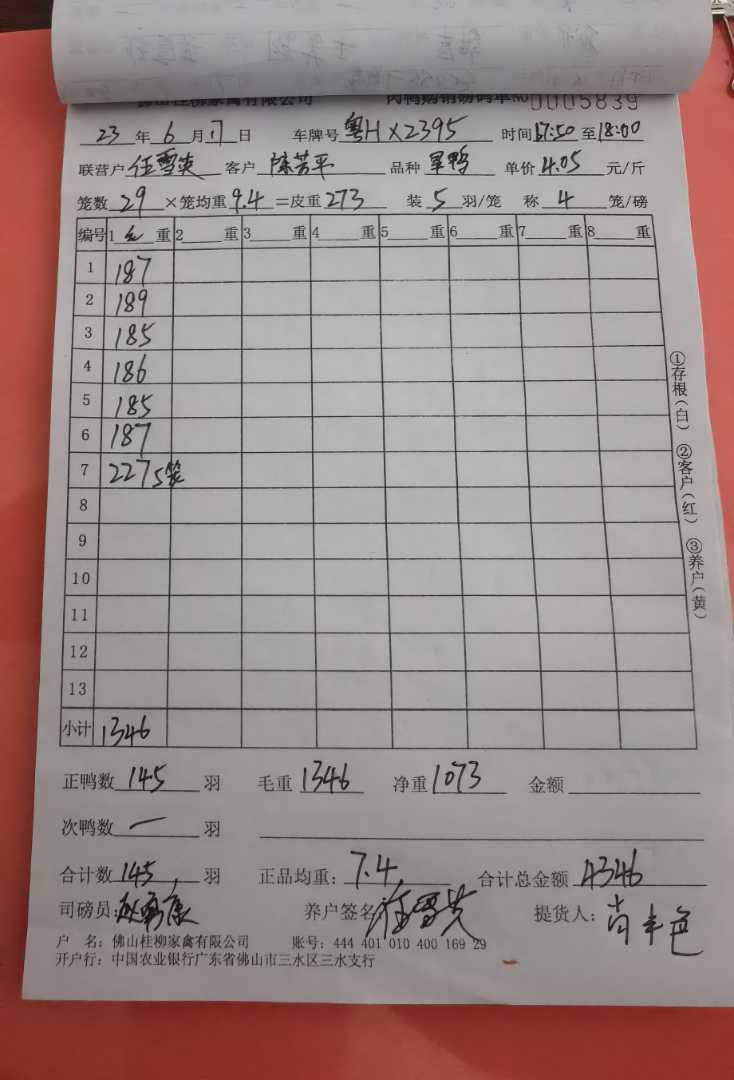 佛山桂柳家禽有限公司 肉鸭购销磅码单 No 0005839
23 年 6 月 17 日 车牌号 粤HX2395 时间 17:50 至 18:00
联营户 任雪英 客户 陈芳平 品种 单价 4.05 元/斤
笼数 29 ×笼均重 9.4 =皮重 273 装 5 羽/笼 称 4 笼/磅
编号 1 重 2 重 3 重 4 重 5 重 6 重 7 重 8 重
1 187
2 189
3 185
4 186
5 185
6 187
7 227 5笼
8
9
10
11
12
13
小计 1346
①存根(白) ②客户(红) ③养户(黄)
正鸭数 145 羽 毛重 1346 净重 1073 金额
次鸭数 一 羽
合计数 145 羽 正品均重: 7.4 合计总金额 4346
司磅员: 养户签名 任雪英 提货人:
户 名: 佛山桂柳家禽有限公司 账号: 444 401 010 400 169 29
开户行: 中国农业银行广东省佛山市三水区三水支行